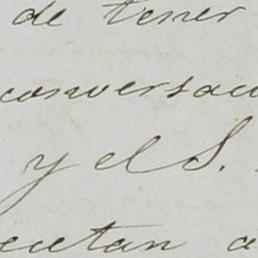 de tener
conversac
y el S.
ecutan a